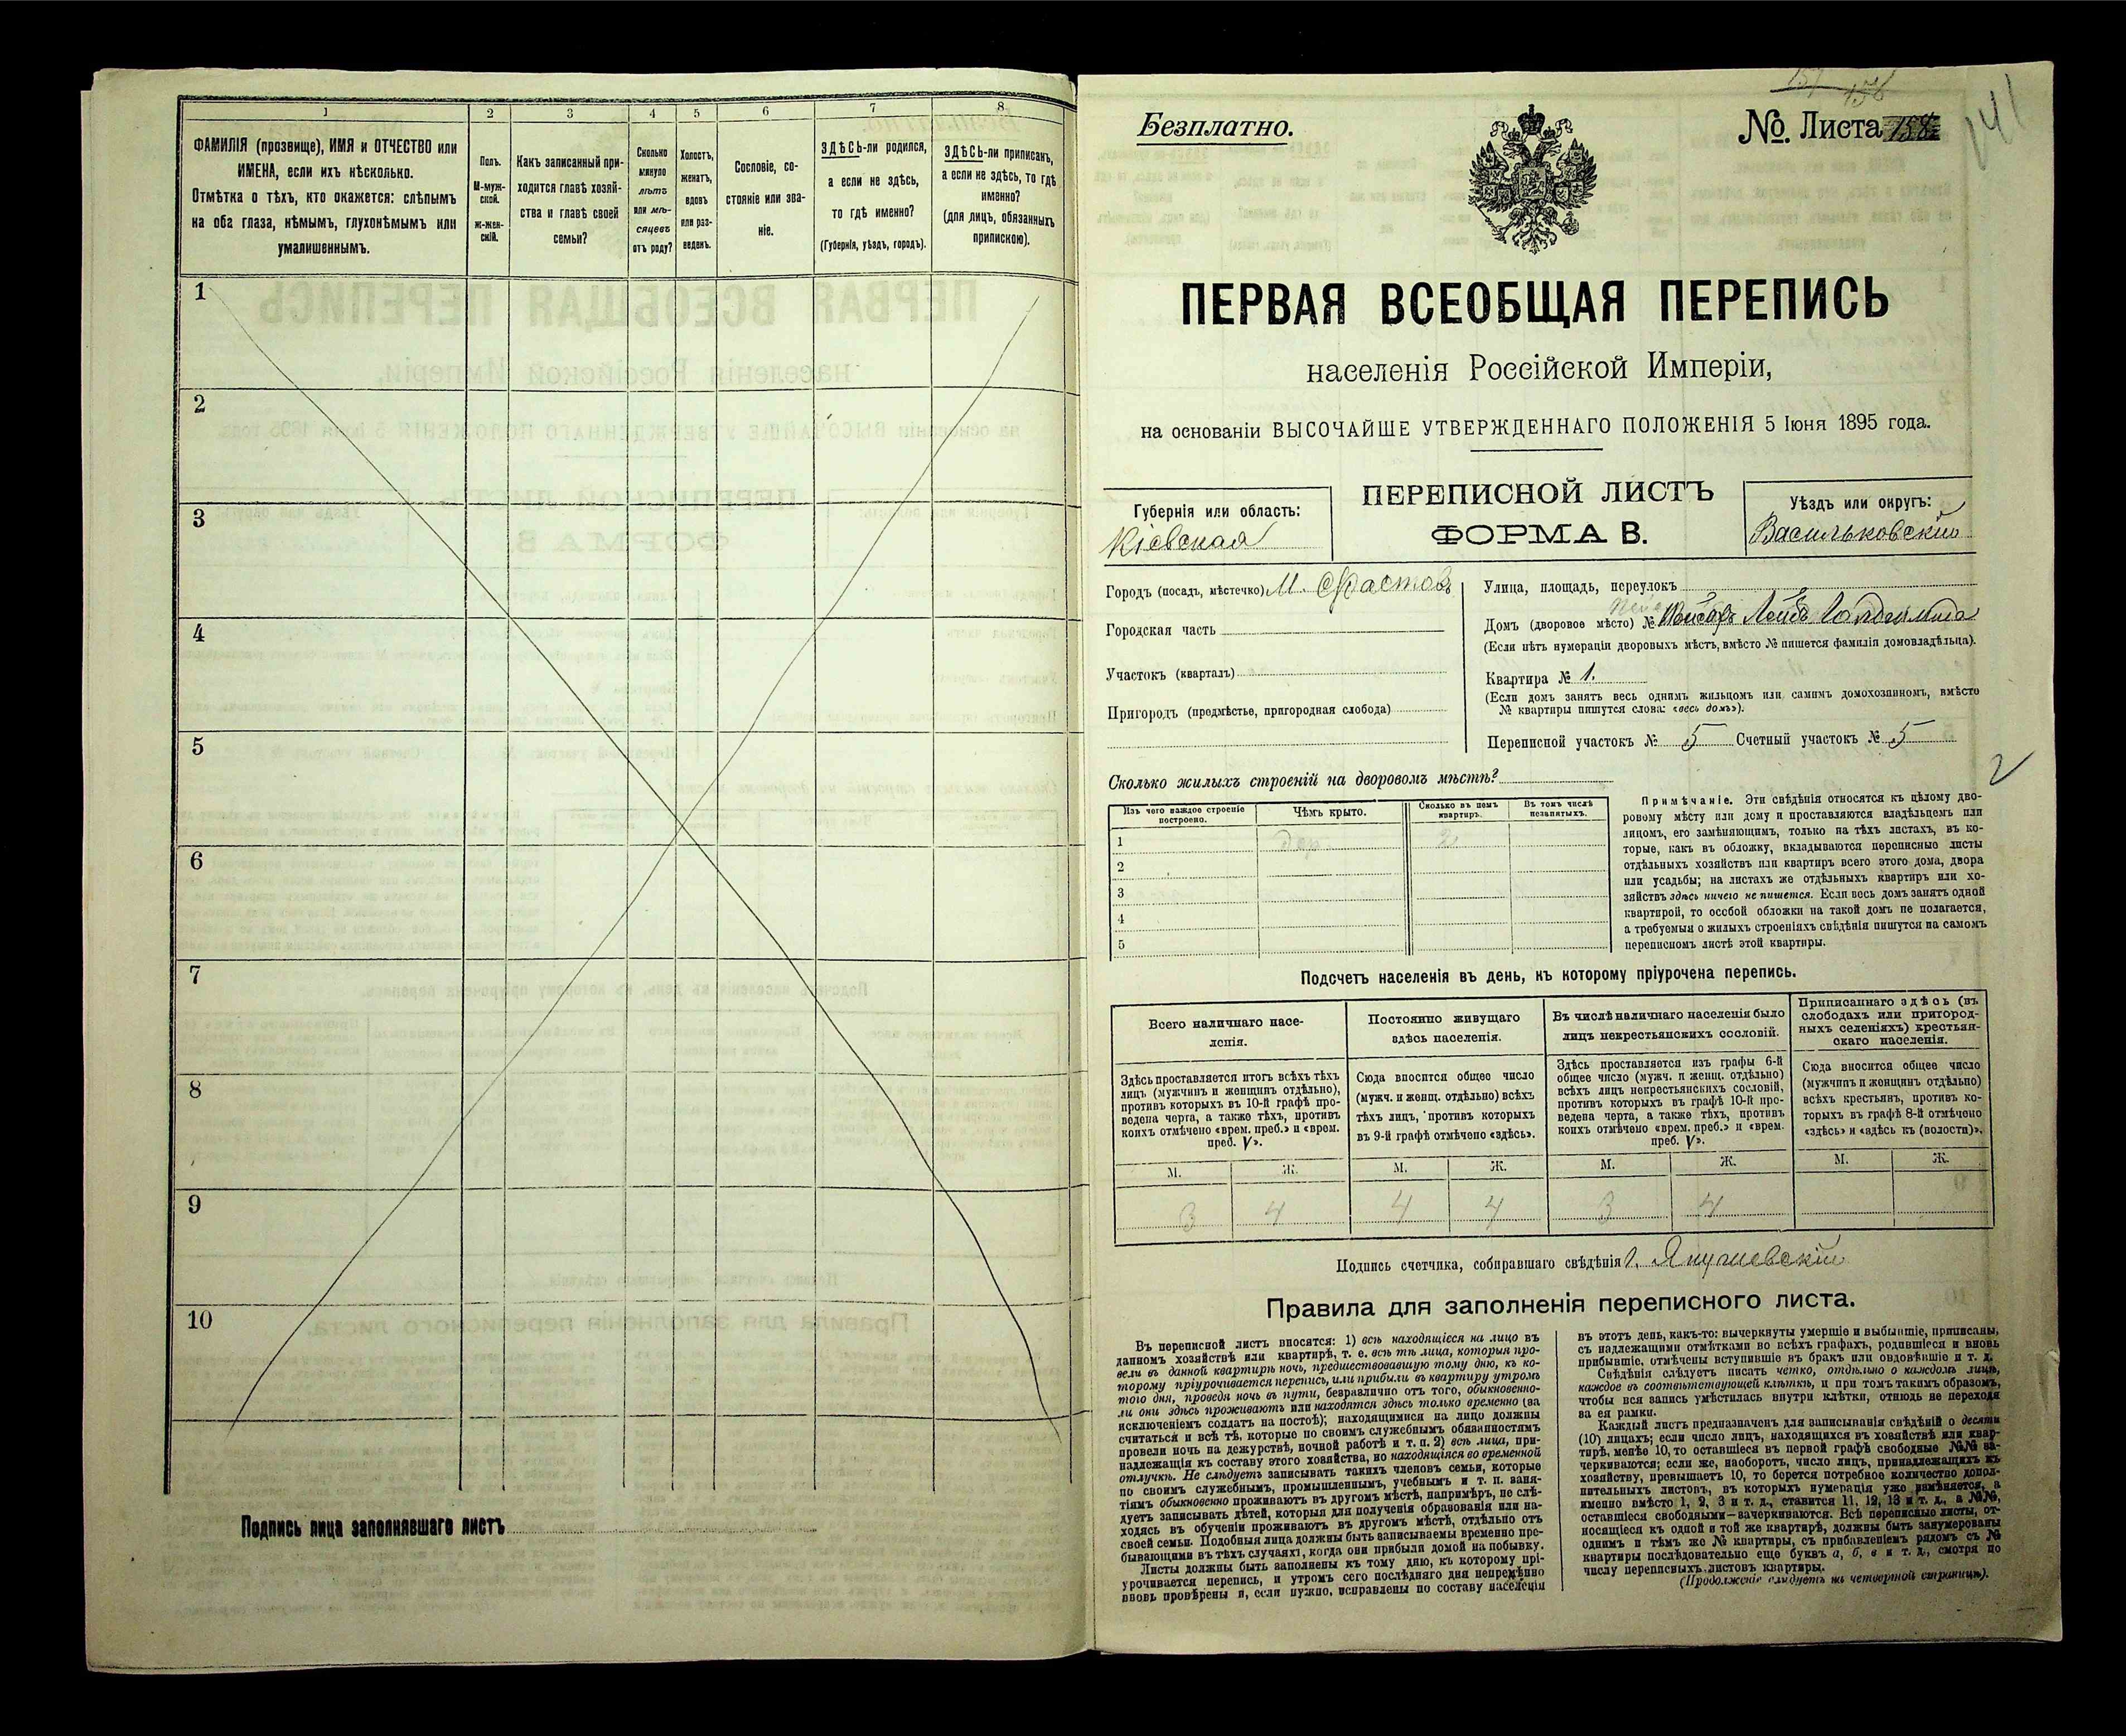 1
2
3
4
5
6
7
8
ФАМИЛІЯ (прозвище), ИМЯ и ОТЧЕСТВО или
ИМЕНА, если ихъ нѣсколько.
Отмѣтка о тѣхъ, кто окажется: слѣпымъ
на оба глаза, нѣмымъ, глухонѣмымъ или
умалишеннымъ.
Полъ.
М-муж-
ской.
Ж-жен-
скій.
Какъ записанный при-
ходится главѣ хозяй-
ства и главѣ своей
семьи?
Сколько
минуло
лѣтъ
или мѣ-
сяцевъ
отъ роду?
Холостъ,
женатъ,
вдовъ
или раз-
веденъ.
Сословіе, со-
стояніе или зва-
ніе.
ЗДѢСЬ-ли родился,
а если не здѣсь,
то гдѣ именно?
(Губернія, уѣздъ, городъ).
ЗДѢСЬ-ли приписанъ,
а если не здѣсь, то гдѣ
именно?
(для лицъ, обязанныхъ
припискою).
1
2
3
4
5
6
7
8
9
10
Подпись лица заполнявшаго листъ
Безплатно.
№ Листа 158
141
ПЕРВАЯ ВСЕОБЩАЯ ПЕРЕПИСЬ
населенія Россійской Имперіи,
на основаніи ВЫСОЧАЙШЕ УТВЕРЖДЕННАГО ПОЛОЖЕНІЯ 5 Іюня 1895 года.
Губернія или область:
Кіевская
ПЕРЕПИСНОЙ ЛИСТЪ
ФОРМА В.
Уѣздъ или округъ:
Васильковскій
Городъ (посадъ, мѣстечко) М. Фастовъ
Городская часть
Участокъ (кварталъ)
Пригородъ (предмѣстье, пригородная слобода)
Улица, площадь, переулокъ
Домъ (дворовое мѣсто) № Лейба
(Если нѣтъ нумераціи дворовыхъ мѣстъ, вмѣсто № пишется фамилія домовладѣльца).
Квартира № 1.
(Если домъ занятъ весь однимъ жильцомъ или самимъ домохозяиномъ, вмѣсто
№ квартиры пишутся слова: «весь домъ»).
Переписной участокъ № 5 Счетный участокъ № 5
2
Сколько жилыхъ строеній на дворовомъ мѣстѣ?
Изъ чего каждое строеніе
построено.
Чѣмъ крыто.
Сколько въ немъ
квартиръ.
Въ томъ числѣ
незанятыхъ.
1 дер. 2
2
3
4
5
Примѣчаніе. Эти свѣдѣнія относятся къ цѣлому дво-
ровому мѣсту или дому и проставляются владѣльцемъ или
лицомъ, его замѣняющимъ, только на тѣхъ листахъ, въ ко-
торые, какъ въ обложку, вкладываются переписные листы
отдѣльныхъ хозяйствъ или квартиръ всего этого дома, двора
или усадьбы; на листахъ же отдѣльныхъ квартиръ или хо-
зяйствъ здѣсь ничего не пишется. Если весь домъ занятъ одной
квартирой, то особой обложки на такой домъ не полагается,
а требуемыя о жилыхъ строеніяхъ свѣдѣнія пишутся на самомъ
переписномъ листѣ этой квартиры.
Подсчетъ населенія въ день, къ которому пріурочена перепись.
Всего наличнаго насе-
ленія.
Постоянно живущаго
здѣсь населенія.
Въ числѣ наличнаго населенія было
лицъ некрестьянскихъ сословій.
Приписаннаго здѣсь (въ
слободахъ или пригород-
ныхъ селеніяхъ) крестьян-
скаго населенія.
Здѣсь проставляется итогъ всѣхъ тѣхъ
лицъ (мужчинъ и женщинъ отдѣльно),
противъ которыхъ въ 10-й графѣ про-
ведена черта, а также тѣхъ, противъ
коихъ отмѣчено «врем. преб.» и «врем.
преб. V».
Сюда вносится общее число
(мужч. и женщ. отдѣльно) всѣхъ
тѣхъ лицъ, противъ которыхъ
въ 9-й графѣ отмѣчено «здѣсь».
Здѣсь проставляется изъ графы 6-й
общее число (мужч. и женщ. отдѣльно)
всѣхъ лицъ некрестьянскихъ сословій,
противъ которыхъ въ графѣ 10-й про-
ведена черта, а также тѣхъ, противъ
коихъ отмѣчено «врем. преб.» и «врем.
преб. V».
Сюда вносится общее число
(мужчинъ и женщинъ отдѣльно)
всѣхъ крестьянъ, противъ ко-
торыхъ въ графѣ 8-й отмѣчено
«здѣсь» и «здѣсь къ (волости)».
М. Ж. М. Ж. М. Ж. М. Ж.
3 4 4 4 3 4
Подпись счетчика, собиравшаго свѣдѣнія
Правила для заполненія переписного листа.
Въ переписной листъ вносятся: 1) всѣ находящіеся на лицо въ
данномъ хозяйствѣ или квартирѣ, т. е. всѣ тѣ лица, которыя про-
вели въ данной квартирѣ ночь, предшествовавшую тому дню, къ ко-
торому пріурочивается перепись, или прибыли въ квартиру утромъ
того дня, проведя ночь въ пути, безразлично отъ того, обыкновенно-
ли они здѣсь проживаютъ или находятся здѣсь только временно (за
исключеніемъ солдатъ на постоѣ); находящимися на лицо должны
считаться и всѣ тѣ, которые по своимъ служебнымъ обязанностямъ
провели ночь на дежурствѣ, ночной работѣ и т. п. 2) всѣ лица, при-
надлежащія къ составу этого хозяйства, но находящіяся во временной
отлучкѣ. Не слѣдуетъ записывать такихъ членовъ семьи, которые
по своимъ служебнымъ, промышленнымъ, учебнымъ и т. п. заня-
тіямъ обыкновенно проживаютъ въ другомъ мѣстѣ, напримѣръ, не слѣ-
дуетъ записывать дѣтей, которыя для полученія образованія или на-
ходясь въ обученіи проживаютъ въ другомъ мѣстѣ, отдѣльно отъ
своей семьи. Подобныя лица должны быть записываемы временно пре-
бывающими въ тѣхъ случаяхъ, когда они прибыли домой на побывку.
Листы должны быть заполнены къ тому дню, къ которому прі-
урочивается перепись, и утромъ сего послѣдняго дня непремѣнно
вновь провѣрены и, если нужно, исправлены по составу населенія
въ этотъ день, какъ-то: вычеркнуты умершіе и выбывшіе, приписаны,
съ надлежащими отмѣтками во всѣхъ графахъ, родившіеся и вновь
прибывшіе, отмѣчены вступившіе въ бракъ или овдовѣвшіе и т. д.
Свѣдѣнія слѣдуетъ писать четко, отдѣльно о каждомъ лицѣ,
каждое въ соотвѣтствующей клѣткѣ, и при томъ такимъ образомъ,
чтобы вся запись умѣстилась внутри клѣтки, отнюдь не переходя
за ея рамки.
Каждый листъ предназначенъ для записыванія свѣдѣній о десяти
(10) лицахъ; если число лицъ, находящихся въ хозяйствѣ или квар-
тирѣ, менѣе 10, то оставшіеся въ первой графѣ свободные №№ за-
черкиваются; если же, наоборотъ, число лицъ, принадлежащихъ къ
хозяйству, превышаетъ 10, то берется потребное количество допол-
нительныхъ листовъ, въ которыхъ нумерація уже измѣняется, а
именно вмѣсто 1, 2, 3 и т. д., ставится 11, 12, 13 и т. д., а №№,
оставшіеся свободными—зачеркиваются. Всѣ переписные листы, от-
носящіеся къ одной и той же квартирѣ, должны быть занумерованы
однимъ и тѣмъ же № квартиры, съ прибавленіемъ рядомъ съ №
квартиры послѣдовательно еще буквъ а, б, в и т. д., смотря по
числу переписныхъ листовъ квартиры.
(Продолженіе слѣдуетъ на четвертой страницѣ).